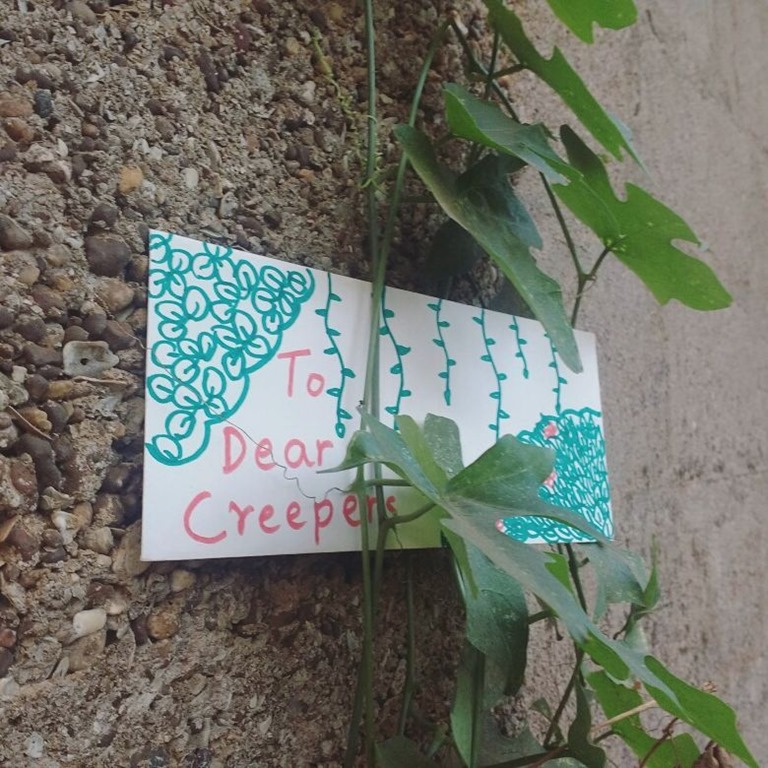 To
Dear
Creepers